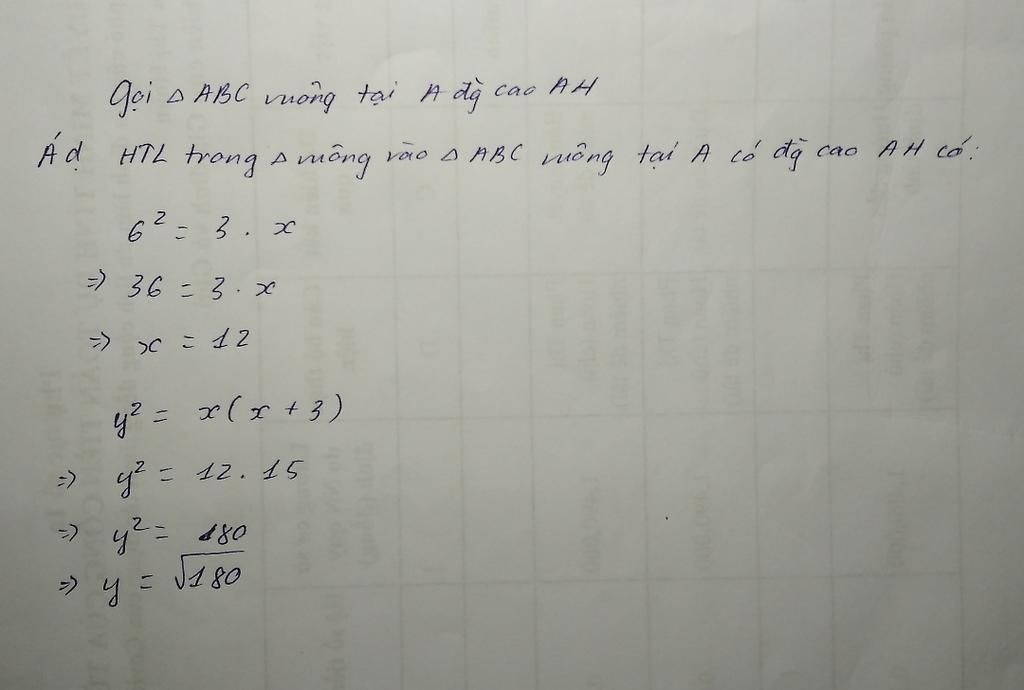 Gọi △ ABC vuông tại A đg̀ cao AH
Ád HTL trong △ vuông vào △ ABC vuông tại A có đg̀ cao AH có:
6² = 3 . x
=> 36 = 3 . x
=> x = 12
y² = x(x + 3)
=> y² = 12 . 15
=> y² = 180
=> y = √180